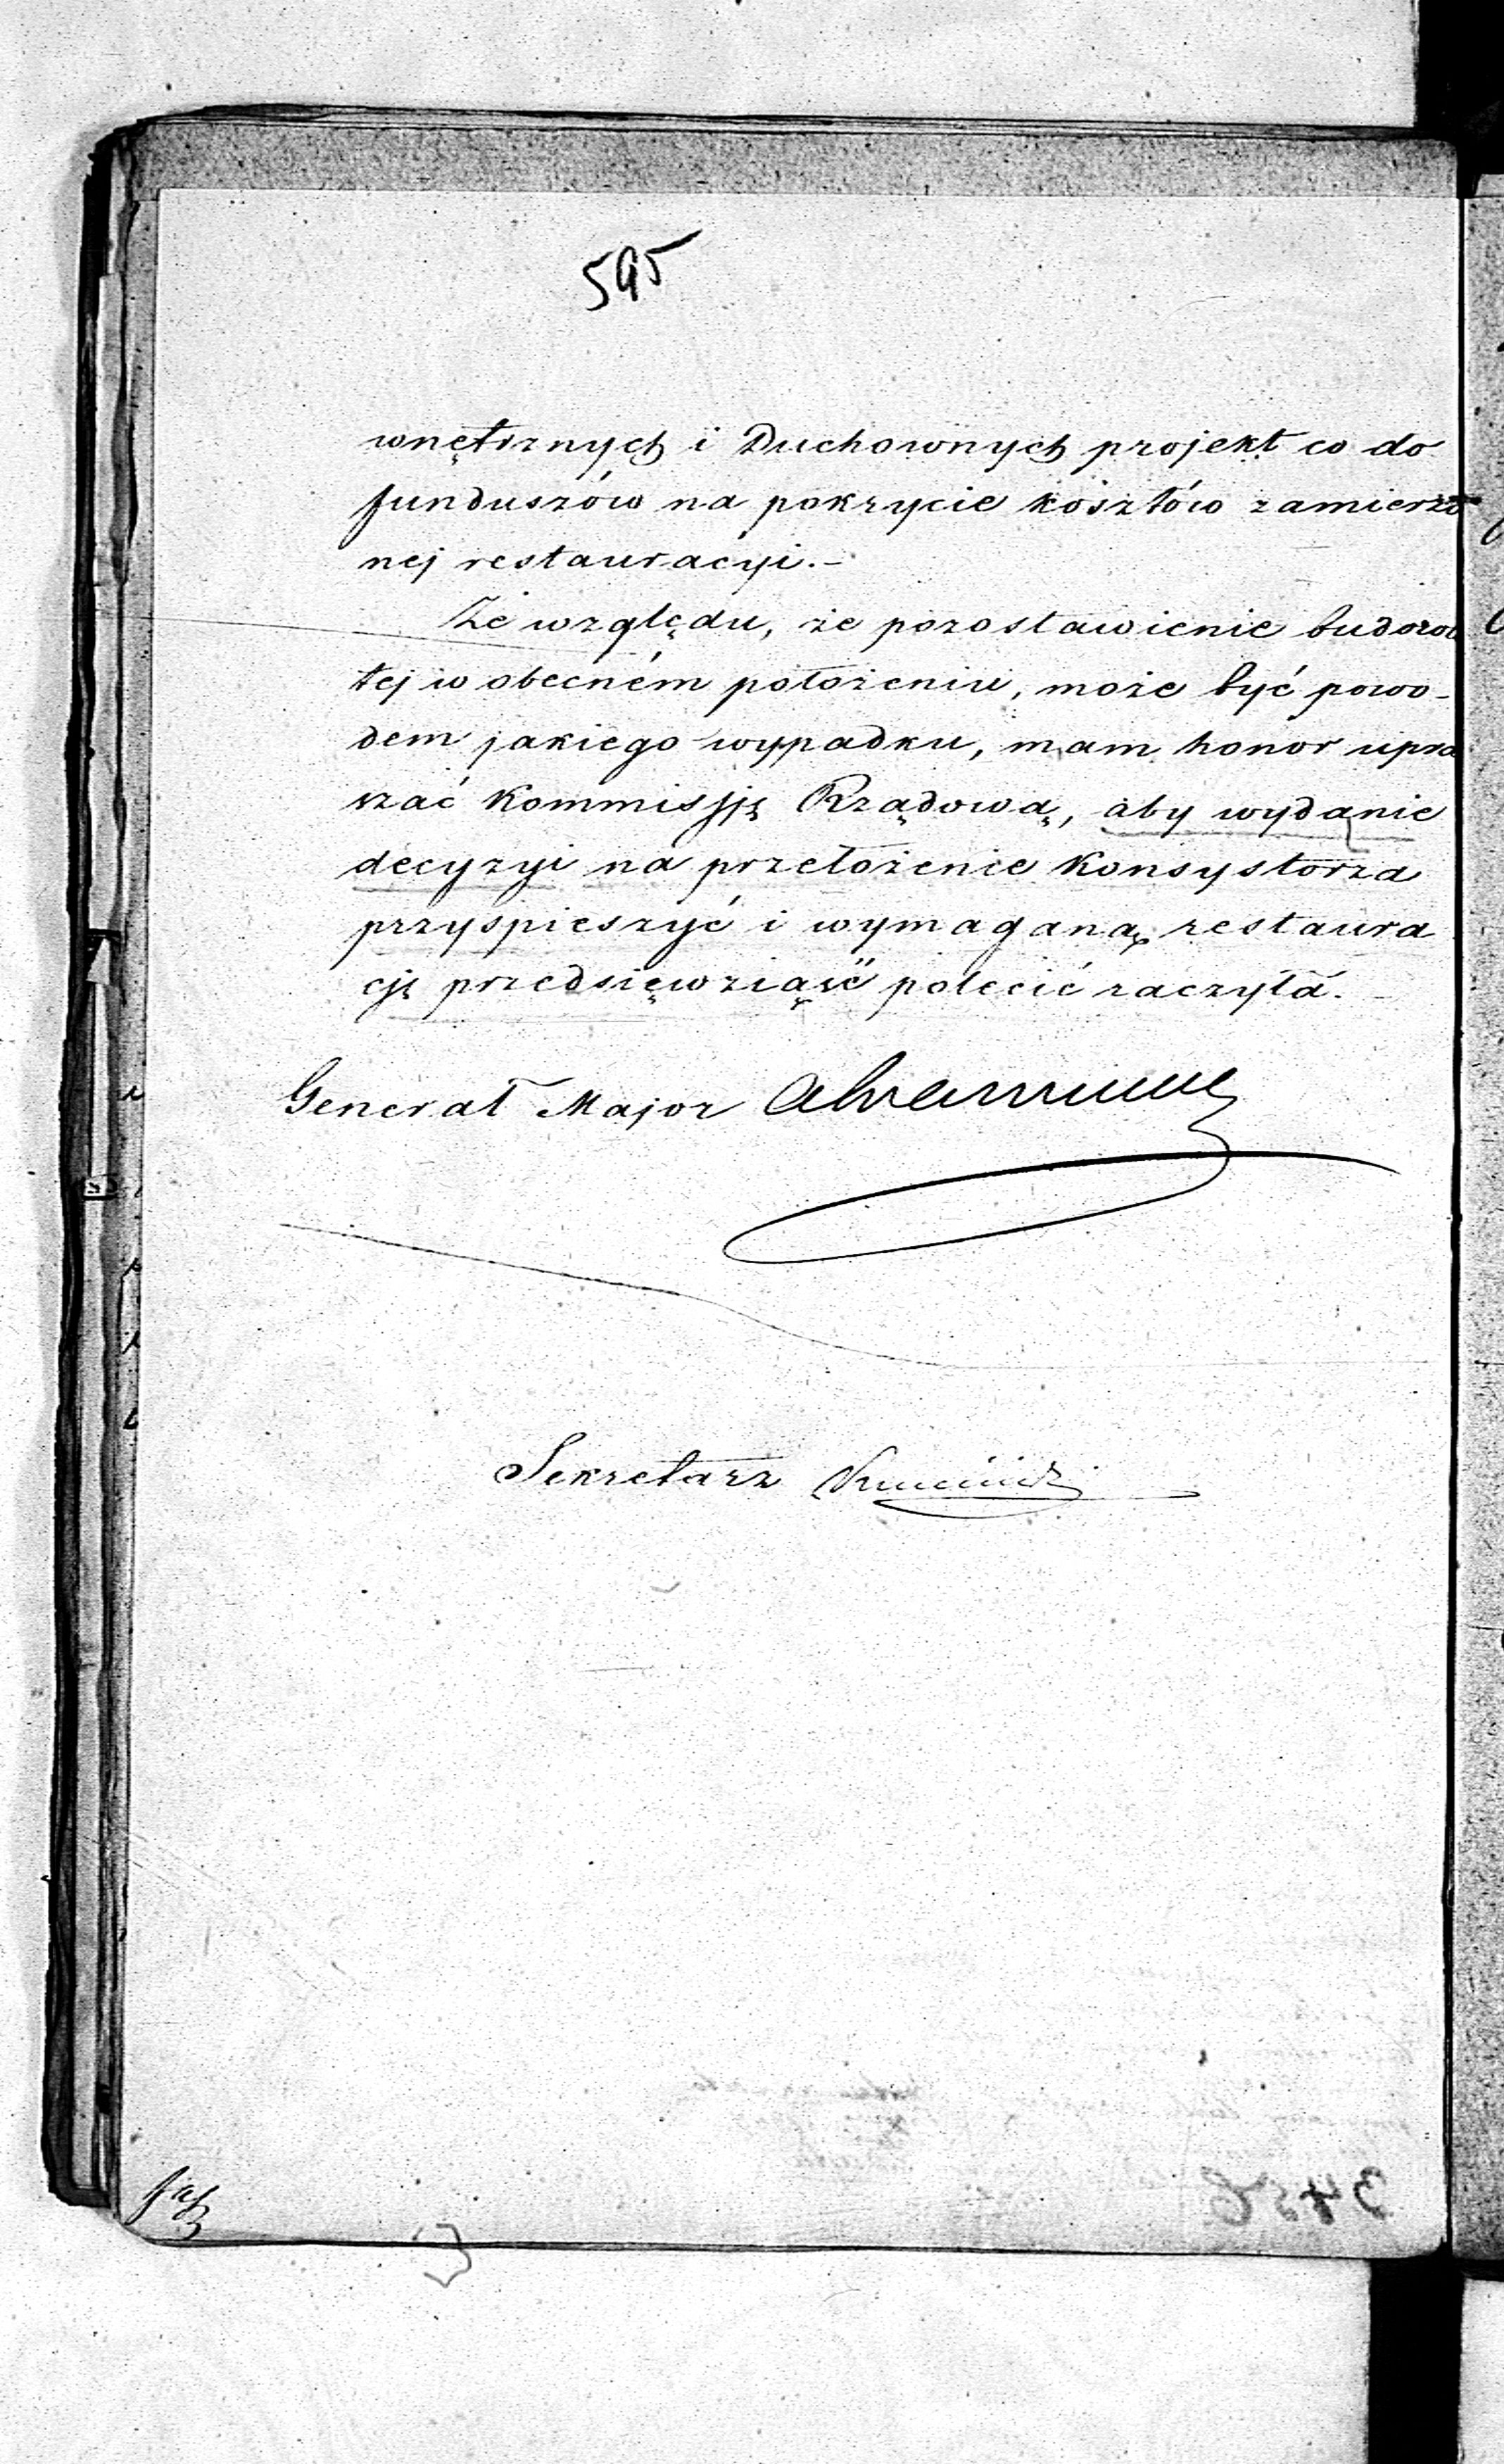 595
wnętrznych i Duchownych projekt co do
funduszów na pokrycie kosztów zamierzo
nej restauracyi.-
Ze względu, że pozostawienie budowl
tej w obecném położeniu, może być powo-
dem jakiego wypadku, mam honor upra
szać Kommissję Rządową, aby wydanie
decyzyi na przełożenie Konsystorza
przyspieszyć i wymaganą restaura
cję przedsięwziąść polecić raczyła.-
Generał Major
Sekretarz
3456